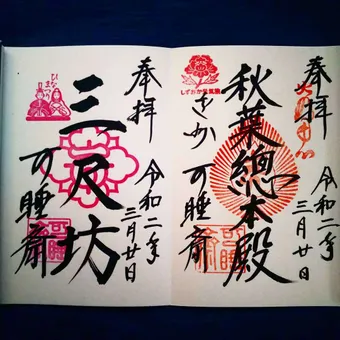 奉拝
秋葉總本殿
しずおか
きか
可睡斎
令和二年
三月廿日
奉拝
ひなまつり
三尺坊
可睡斎
令和二年
三月廿日